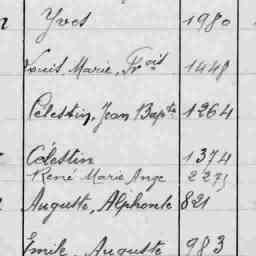 Yves 1980
Louis, Marie, Frois 1448
Célestin, Jean Bapte 1264
Célestin 1374
René Marie Ange
Auguste, Alphonse 821
Émile, Auguste 983